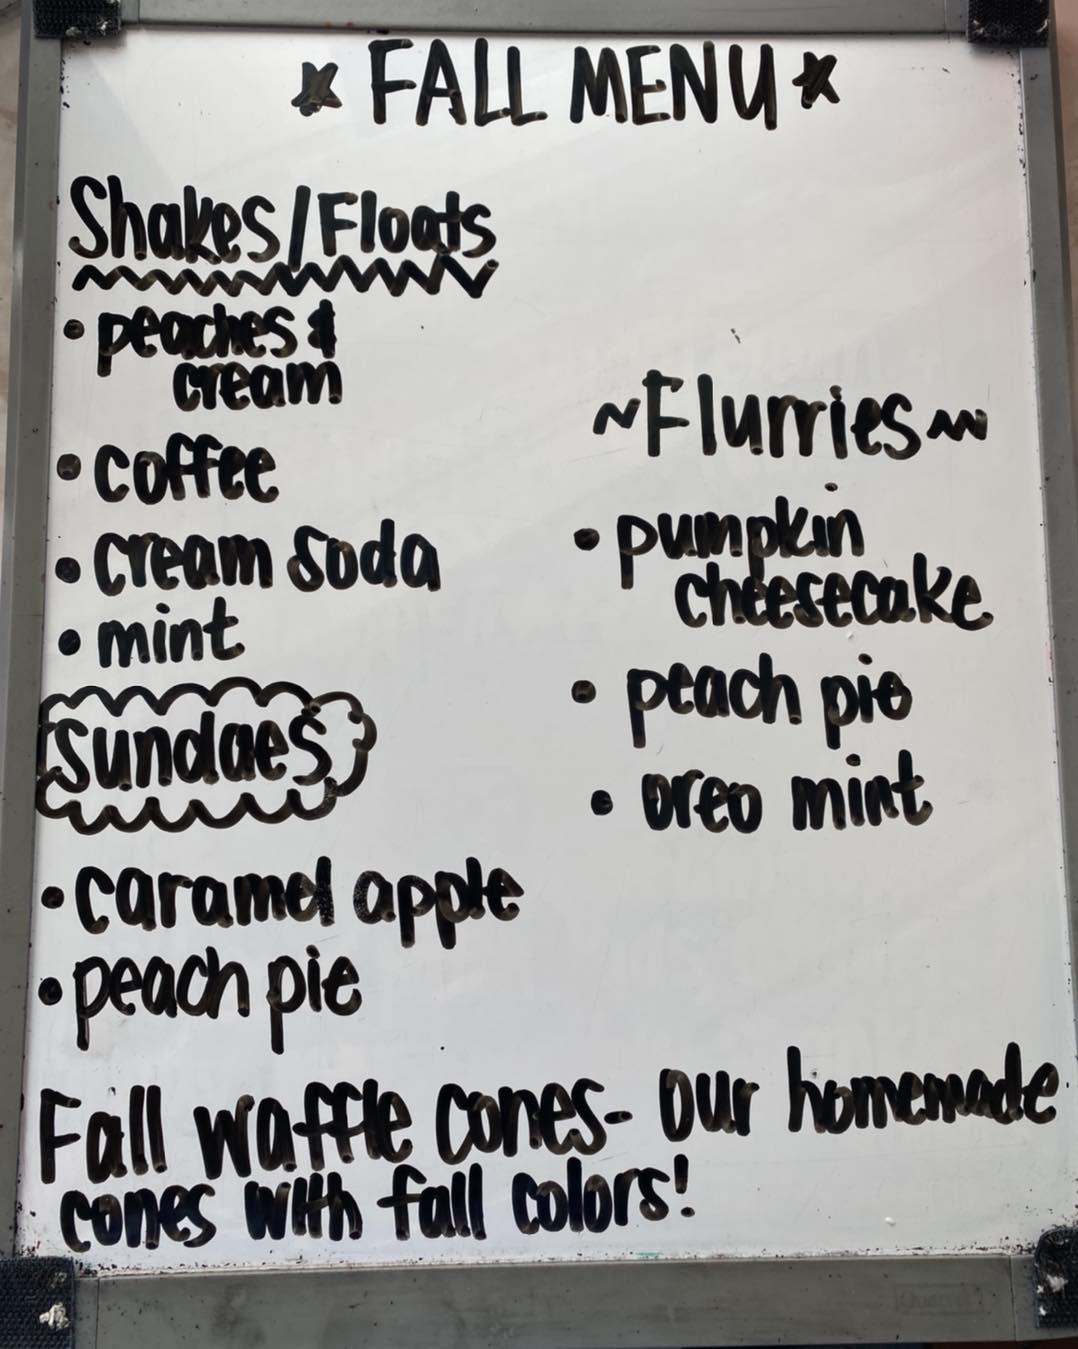 * FALL MENU *
Shakes/Floats
• peaches &
cream
• coffee
• cream soda
• mint
Sundaes
• caramel apple
• peach pie
~Flurries~
• pumpkin
cheesecake
• peach pie
• oreo mint
Fall waffle cones- our homemade
cones with fall colors!